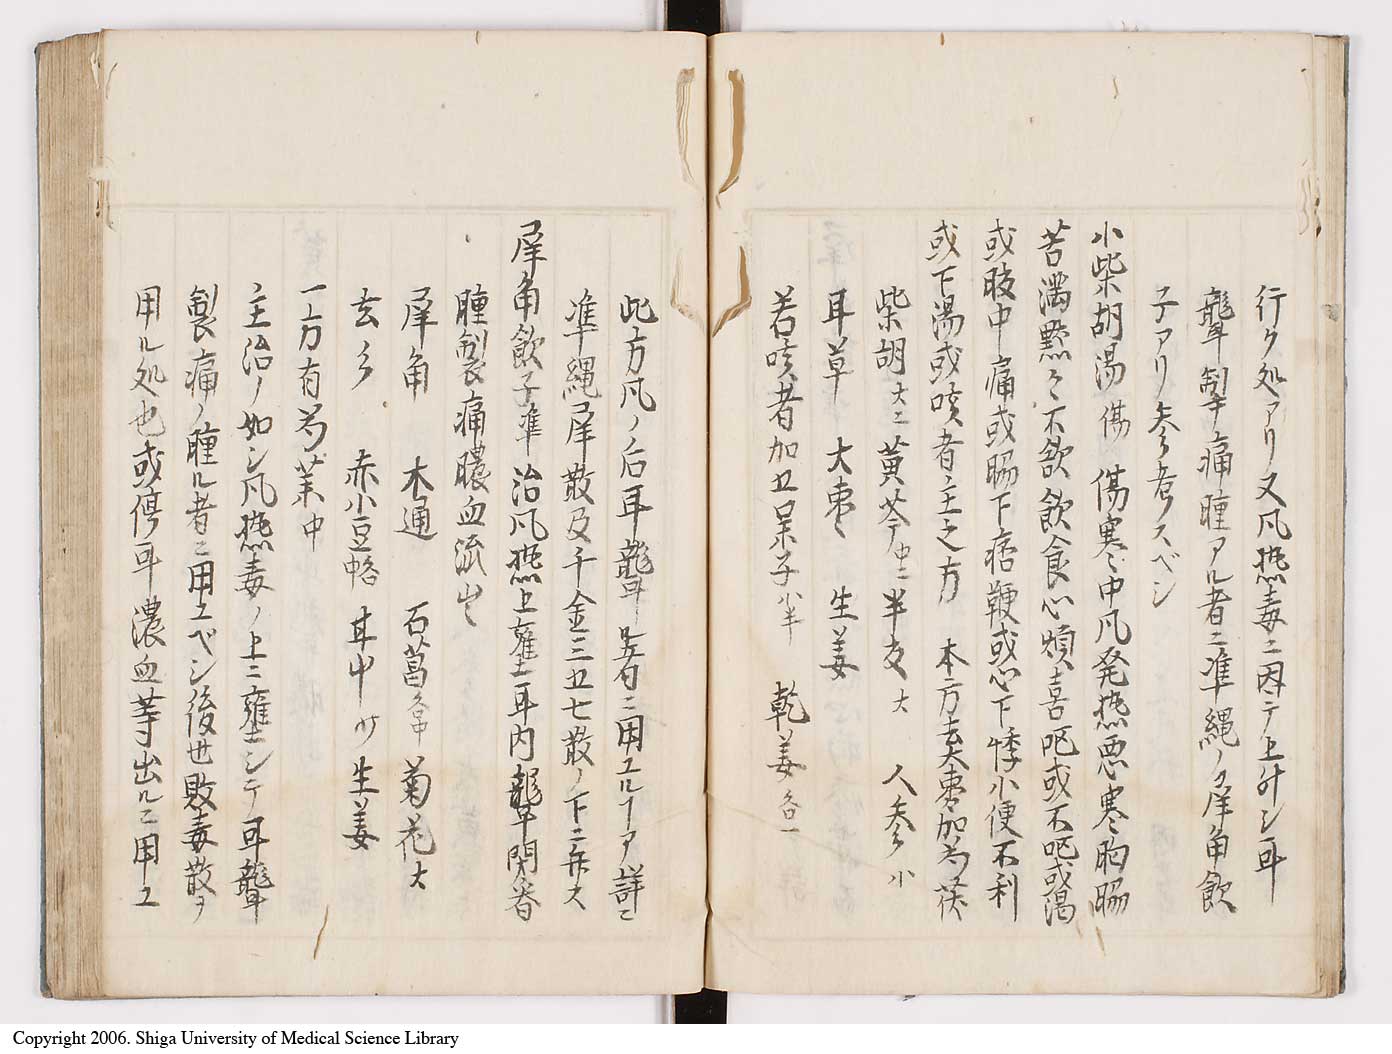 行ク処アリ又凡熱毒ニ因テ上升シ耳
聾掣痛腫アル者ニ準縄ノ犀角飲
子アリ参考スベシ
小柴胡湯 傷 傷寒中凡発熱悪寒胸脇
苦満黙々不欲飲食心煩喜呕或不呕或渇
或胘中痛或脇下痞鞕或心下悸小便不利
或下湯或咳者主之方 本方去大枣加芍茯
柴胡大ニ 黄芩中ニ 半夏大 人参小
耳草 大枣 生姜
若咳者加五味子小半 乾姜各一
此方凡ノ后耳聾 者ニ用ユルヿア詳ニ
準縄犀散及千金三五七散ノ下ニ弁ス
犀角飲子準 治凡熱上壅耳内聾閉沓
腫掣痛膿血流出
犀角 木通 石菖各中 菊花大
玄参 赤小豆略 甘中 生姜
一方有芍薬中
主治ノ如シ凡熱毒ノ上ニ壅シテ耳聾
掣痛ノ腫ル者ニ用ユベシ後世敗毒散ヲ
用ル処也或停耳濃血等出ルニ用ユ
Copyright 2006. Shiga University of Medical Science Library